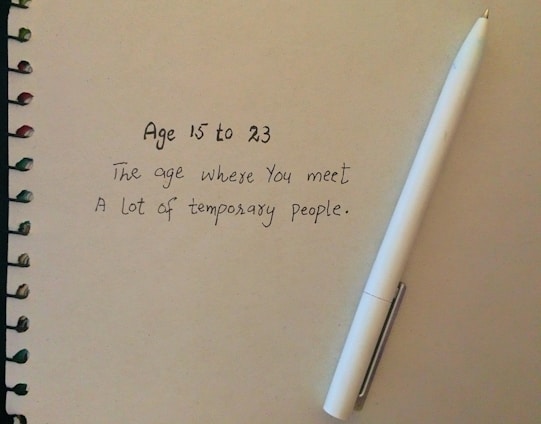 Age 15 to 23
The age where You meet
A lot of temporary people.